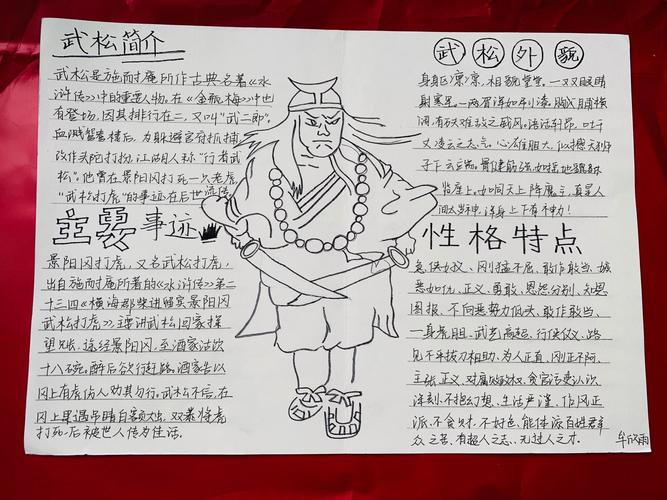 武松简介
武松是施耐庵所作古典名著《水
浒传》中的重要人物。在《金瓶梅》中也
有登场,因其排行在二,又叫"武二郎"。
血溅鸳鸯楼后,为躲避官府抓捕,
改作头陀打扮,江湖人称"行者武
松"。他曾在景阳冈打死一只老虎,
"武松打虎"的事迹在后世流传
主要事迹
景阳冈打虎,又名武松打虎,
出自施耐庵所著的《水浒传》第二
十三回《横海郡柴进留宾 景阳冈
武松打虎》主要讲武松回家探
望兄长,途经景阳冈,至酒家沽饮
十八碗。醉后欲行赶路。酒家告以
冈上有虎伤人劝其勿行。武松不信,在
冈上果遇吊睛白额大虫,双拳将虎
打死,后被世人传为佳话。
武松外貌
身躯凛凛,相貌堂堂。一双眼睛
射寒星。一两眉浑如刷漆。胸脯横
阔,有万夫难敌之威风。语话轩昂,吐千
丈凌云之志气。心雄胆大,似撼天狮
子下云端。骨健筋强,如摇地貔貅
临座上。如同天上降魔主,真是人
间太岁神,浑身上下有神力!
性格特点
急侠好义、刚猛不屈、敢作敢当、嫉
恶如仇、正义、勇敢、恩怨分别、知恩
图报、不向恶势力低头、敢作敢当、
一身虎胆、武艺高超、行侠仗义、路
见不平拔刀相助、为人正直、刚正不阿、
主张正义、对腐败政权、贪官污吏认识
深刻、不抱幻想、生活严谨、作风正
派、不贪财、不好色、能体谅百姓群
众之苦、有超人之志、无过人之才。
欣雨